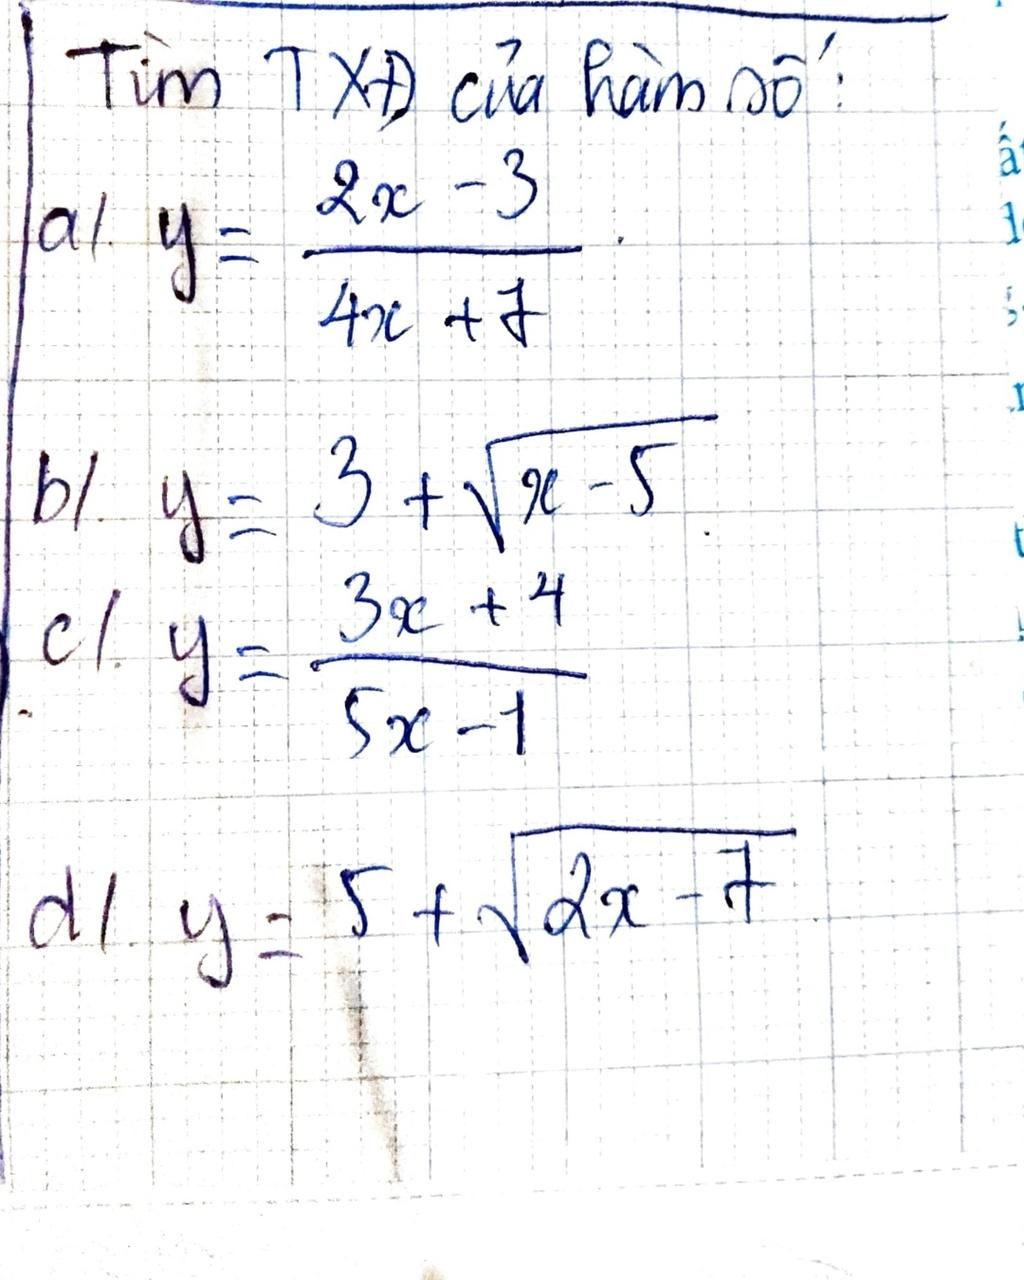 Tìm TXĐ của hàm số:
a/. y = \frac{2x - 3}{4x + 7}.
b/. y = 3 + \sqrt{x - 5}.
c/. y = \frac{3x + 4}{5x - 1}
d/. y = 5 + \sqrt{2x - 7}